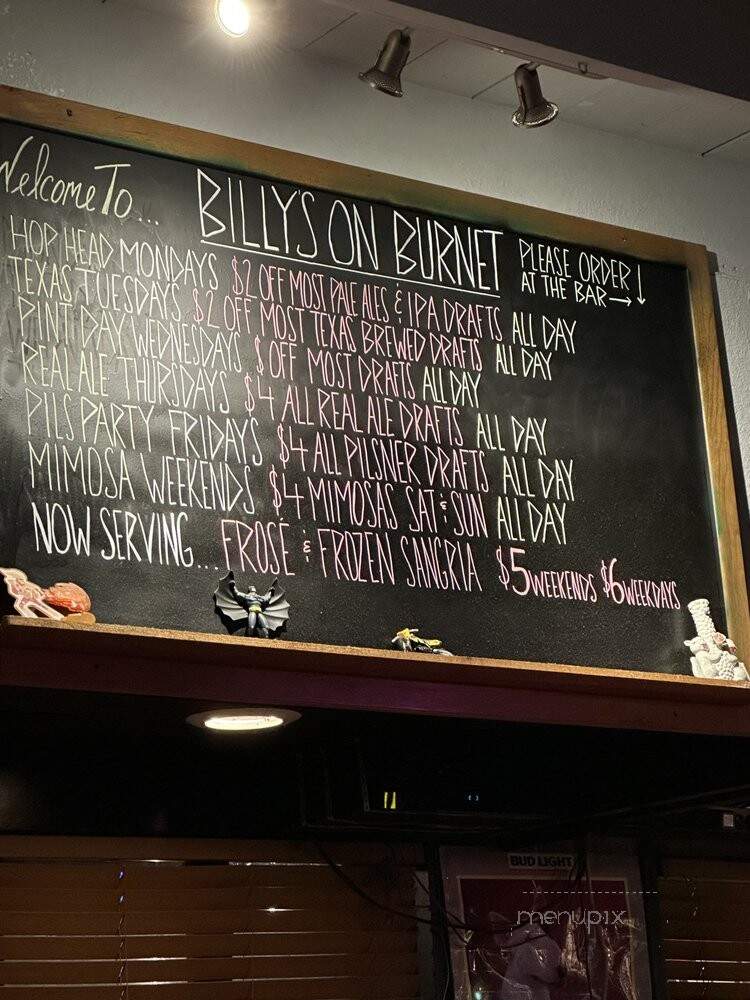 Welcome To...
BILLY'S ON BURNET
PLEASE ORDER
AT THE BAR → ↓
HOP HEAD MONDAYS $2 OFF MOST PALE ALES & IPA DRAFTS ALL DAY
TEXAS TUESDAYS $2 OFF MOST TEXAS BREWED DRAFTS ALL DAY
PINT DAY WEDNESDAYS $ OFF MOST DRAFTS ALL DAY
REAL ALE THURSDAYS $4 ALL REAL ALE DRAFTS ALL DAY
PILS PARTY FRIDAYS $4 ALL PILSNER DRAFTS ALL DAY
MIMOSA WEEKENDS $4 MIMOSAS SAT & SUN ALL DAY
NOW SERVING... FROSÉ & FROZEN SANGRIA $5 WEEKENDS $6 WEEKDAYS
BUD LIGHT
menupix